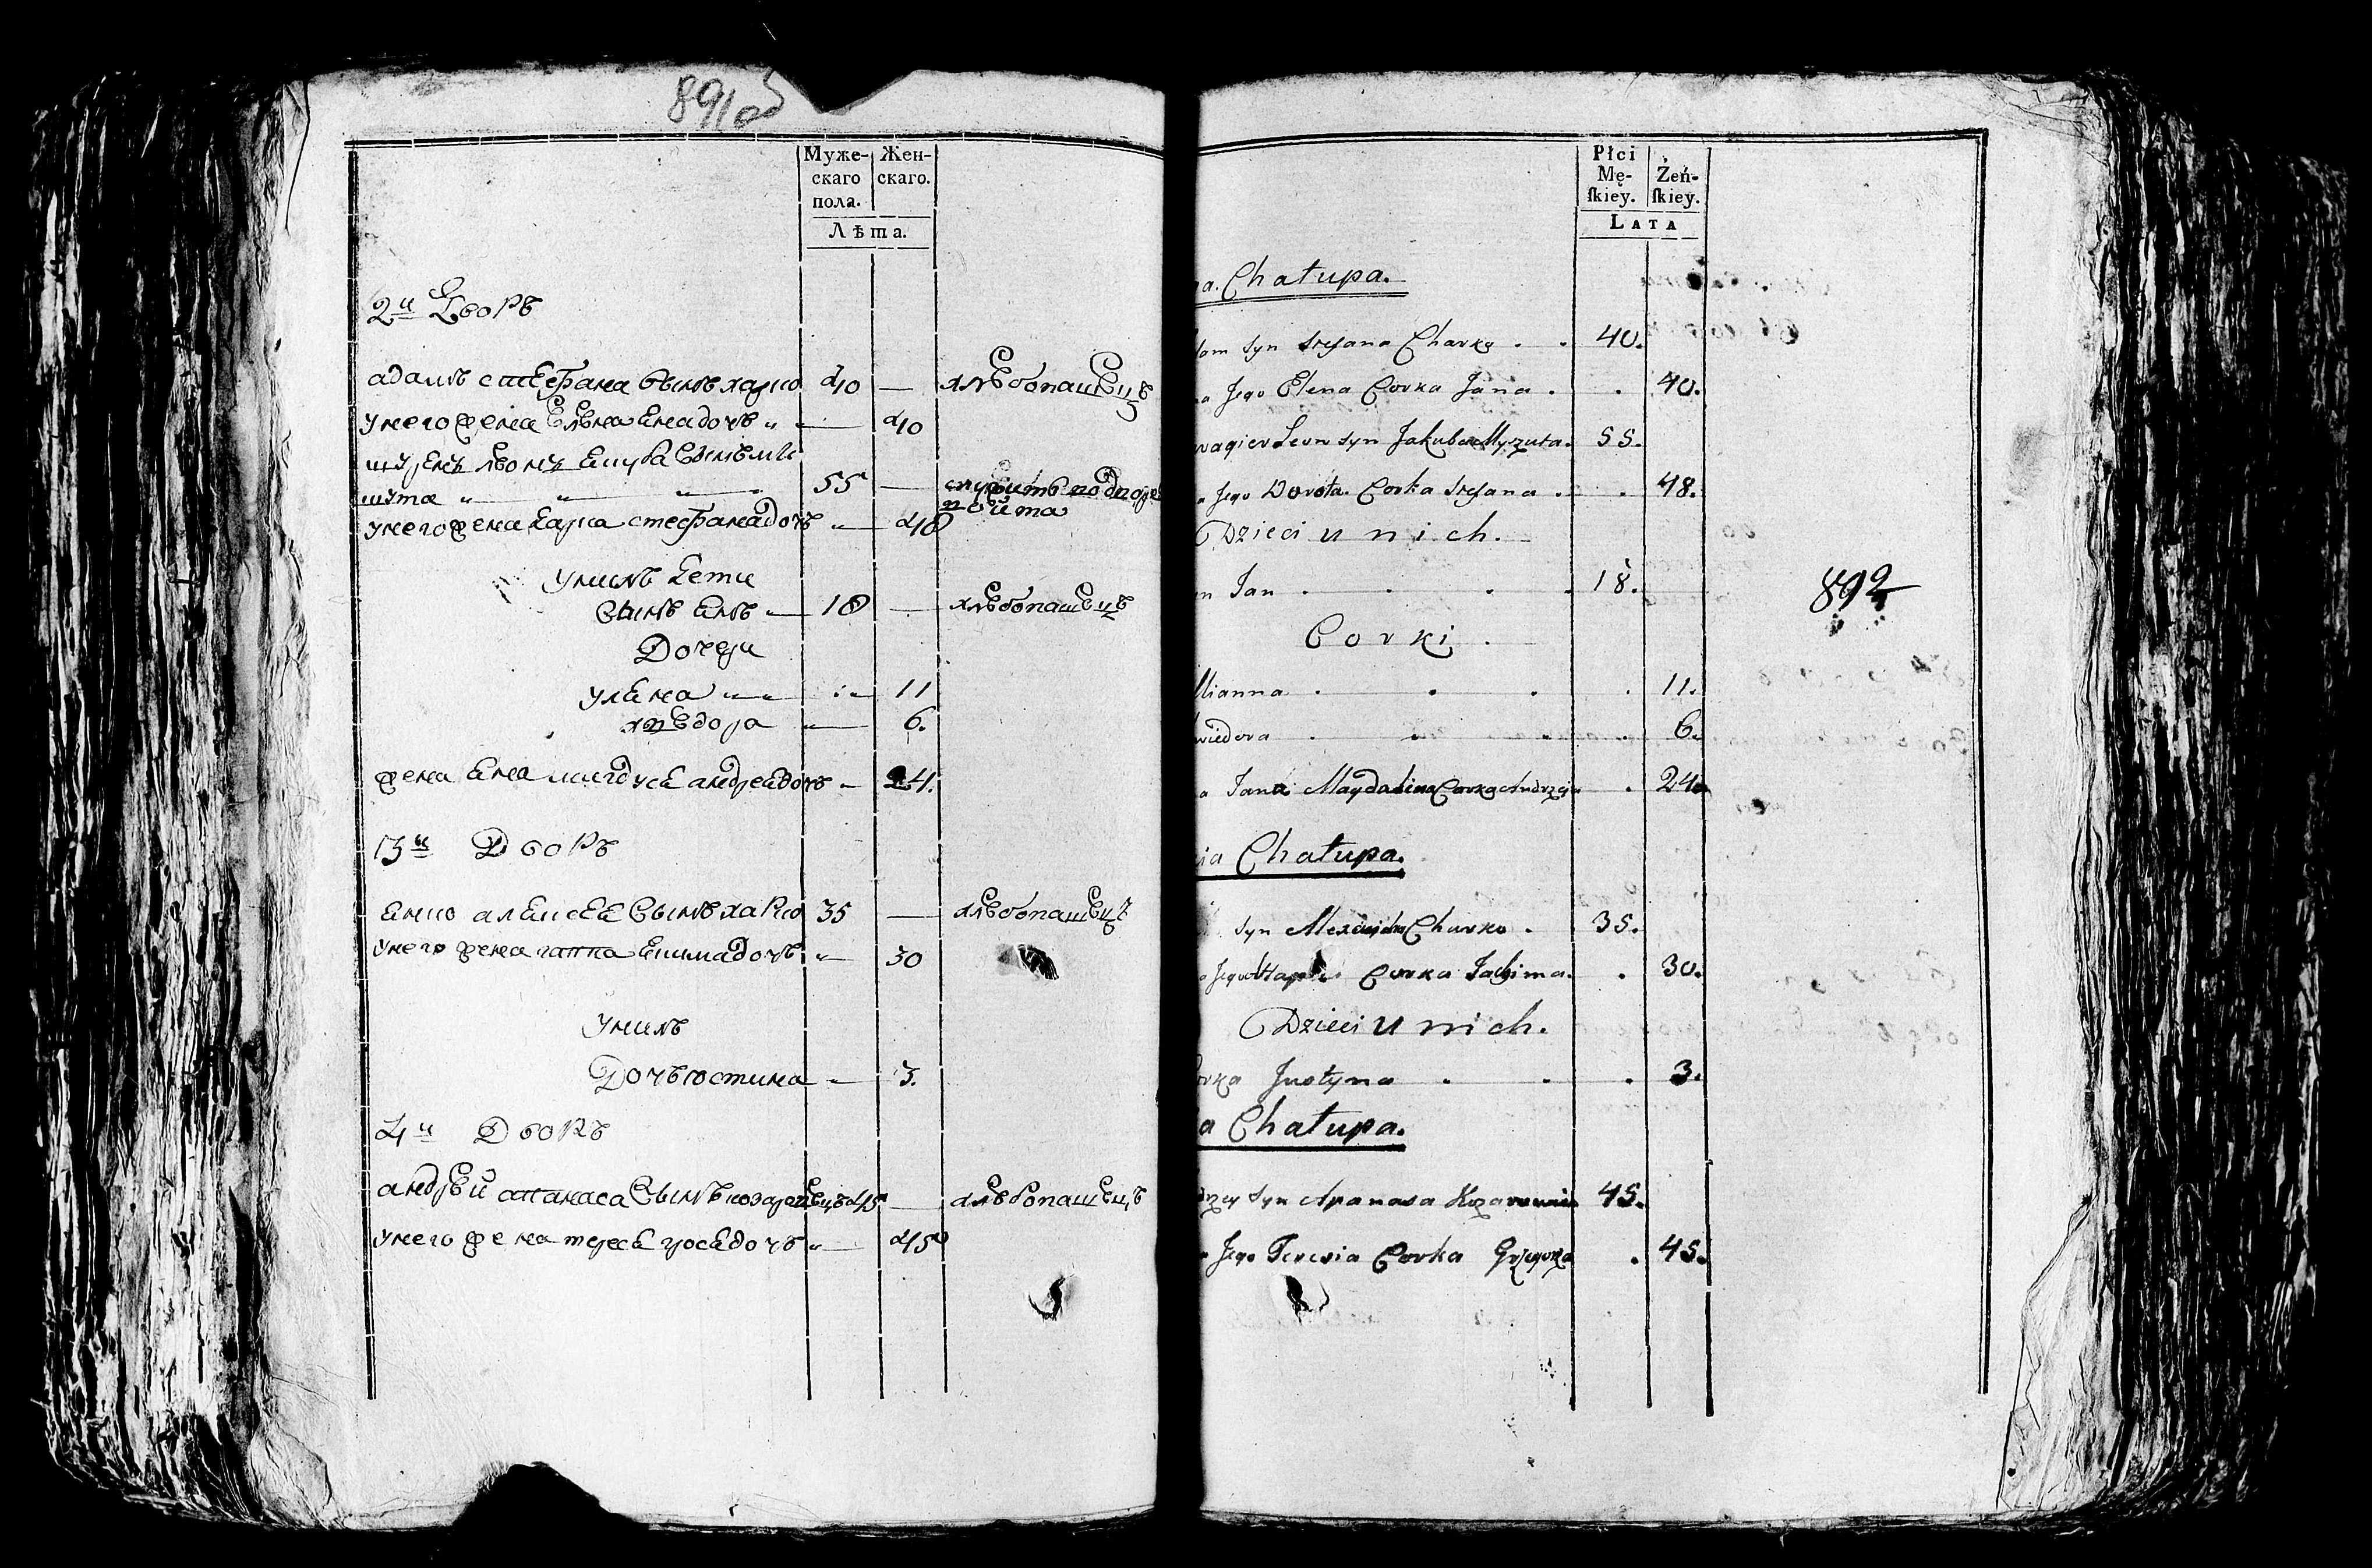 891об
Муже-
скаго
пола.
Жен-
скаго.
Лѣта.
2й Дворъ
адамъ стефана сынъ харко 40 — хлѣбопашецъ
унего жена Елена Енадочь „ — 40
шурен
шута „ „ „ 55 — служитъ
унего жена стефанадочъ „ 48
унихъ дети
Сынъ Енъ — 18 — хлѣбопашецъ
Дочери
улена „ „ „ 11
хведора „ 6.
жена Ена магдуся андреядочъ „ 24.
3й Дворъ
сынъ харко 35 — хлѣбопашецъ
унего жена гаппа Екимадочъ „ 30
унихъ
Дочъ юстина „ 3.
4й Дворъ
андрей апанаса Сынъ 45 — хлѣбопашецъ
унего жена тереся „ — 45
Płci
Mę-
ſkiey.
Żeń-
ſkiey.
LATA
a. Chałupa.
dam Syn Stefana Charko . . 40.
a Jego Elena Corka Jana . . 40.
wagier Leon Syn Jakuba Myzuta. 55.
a Jego Dorota Corka Stefana . . 48.
Dzieci u nich.
n Jan . . . . 18.
Corki
llianna . . . . 11.
wiedora . . . . 6.
a Jana Magdalina Corka Andrzeja . 24.
ia Chałupa.
Syn Charko . 35.
a Jego Corka Jachima. . 30.
Dzieci u nich.
orka Justyna . . . 3.
a Chałupa.
drzey Syn Apanasa 45.
a Jego Teresia Corka Grzegorza . 45.
892